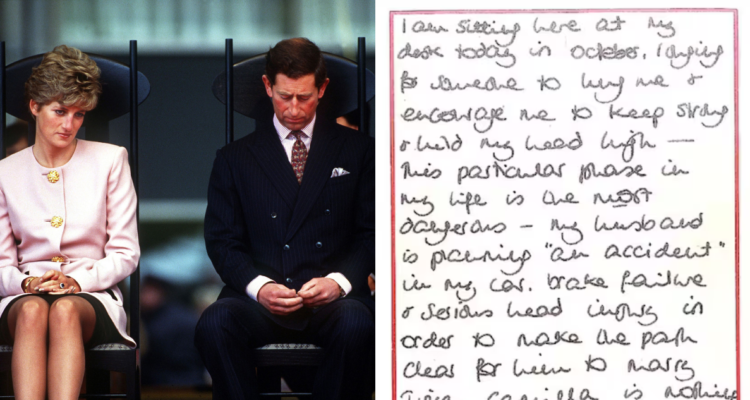 I am sitting here at my
desk today in October, longing
for someone to hug me &
encourage me to keep strong
& hold my head high —
This particular phase in
my life is the most
dangerous — my husband
is planning "an accident"
in my car. brake failure
& serious head injury in
order to make the path
clear for him to marry
camilla is nothing